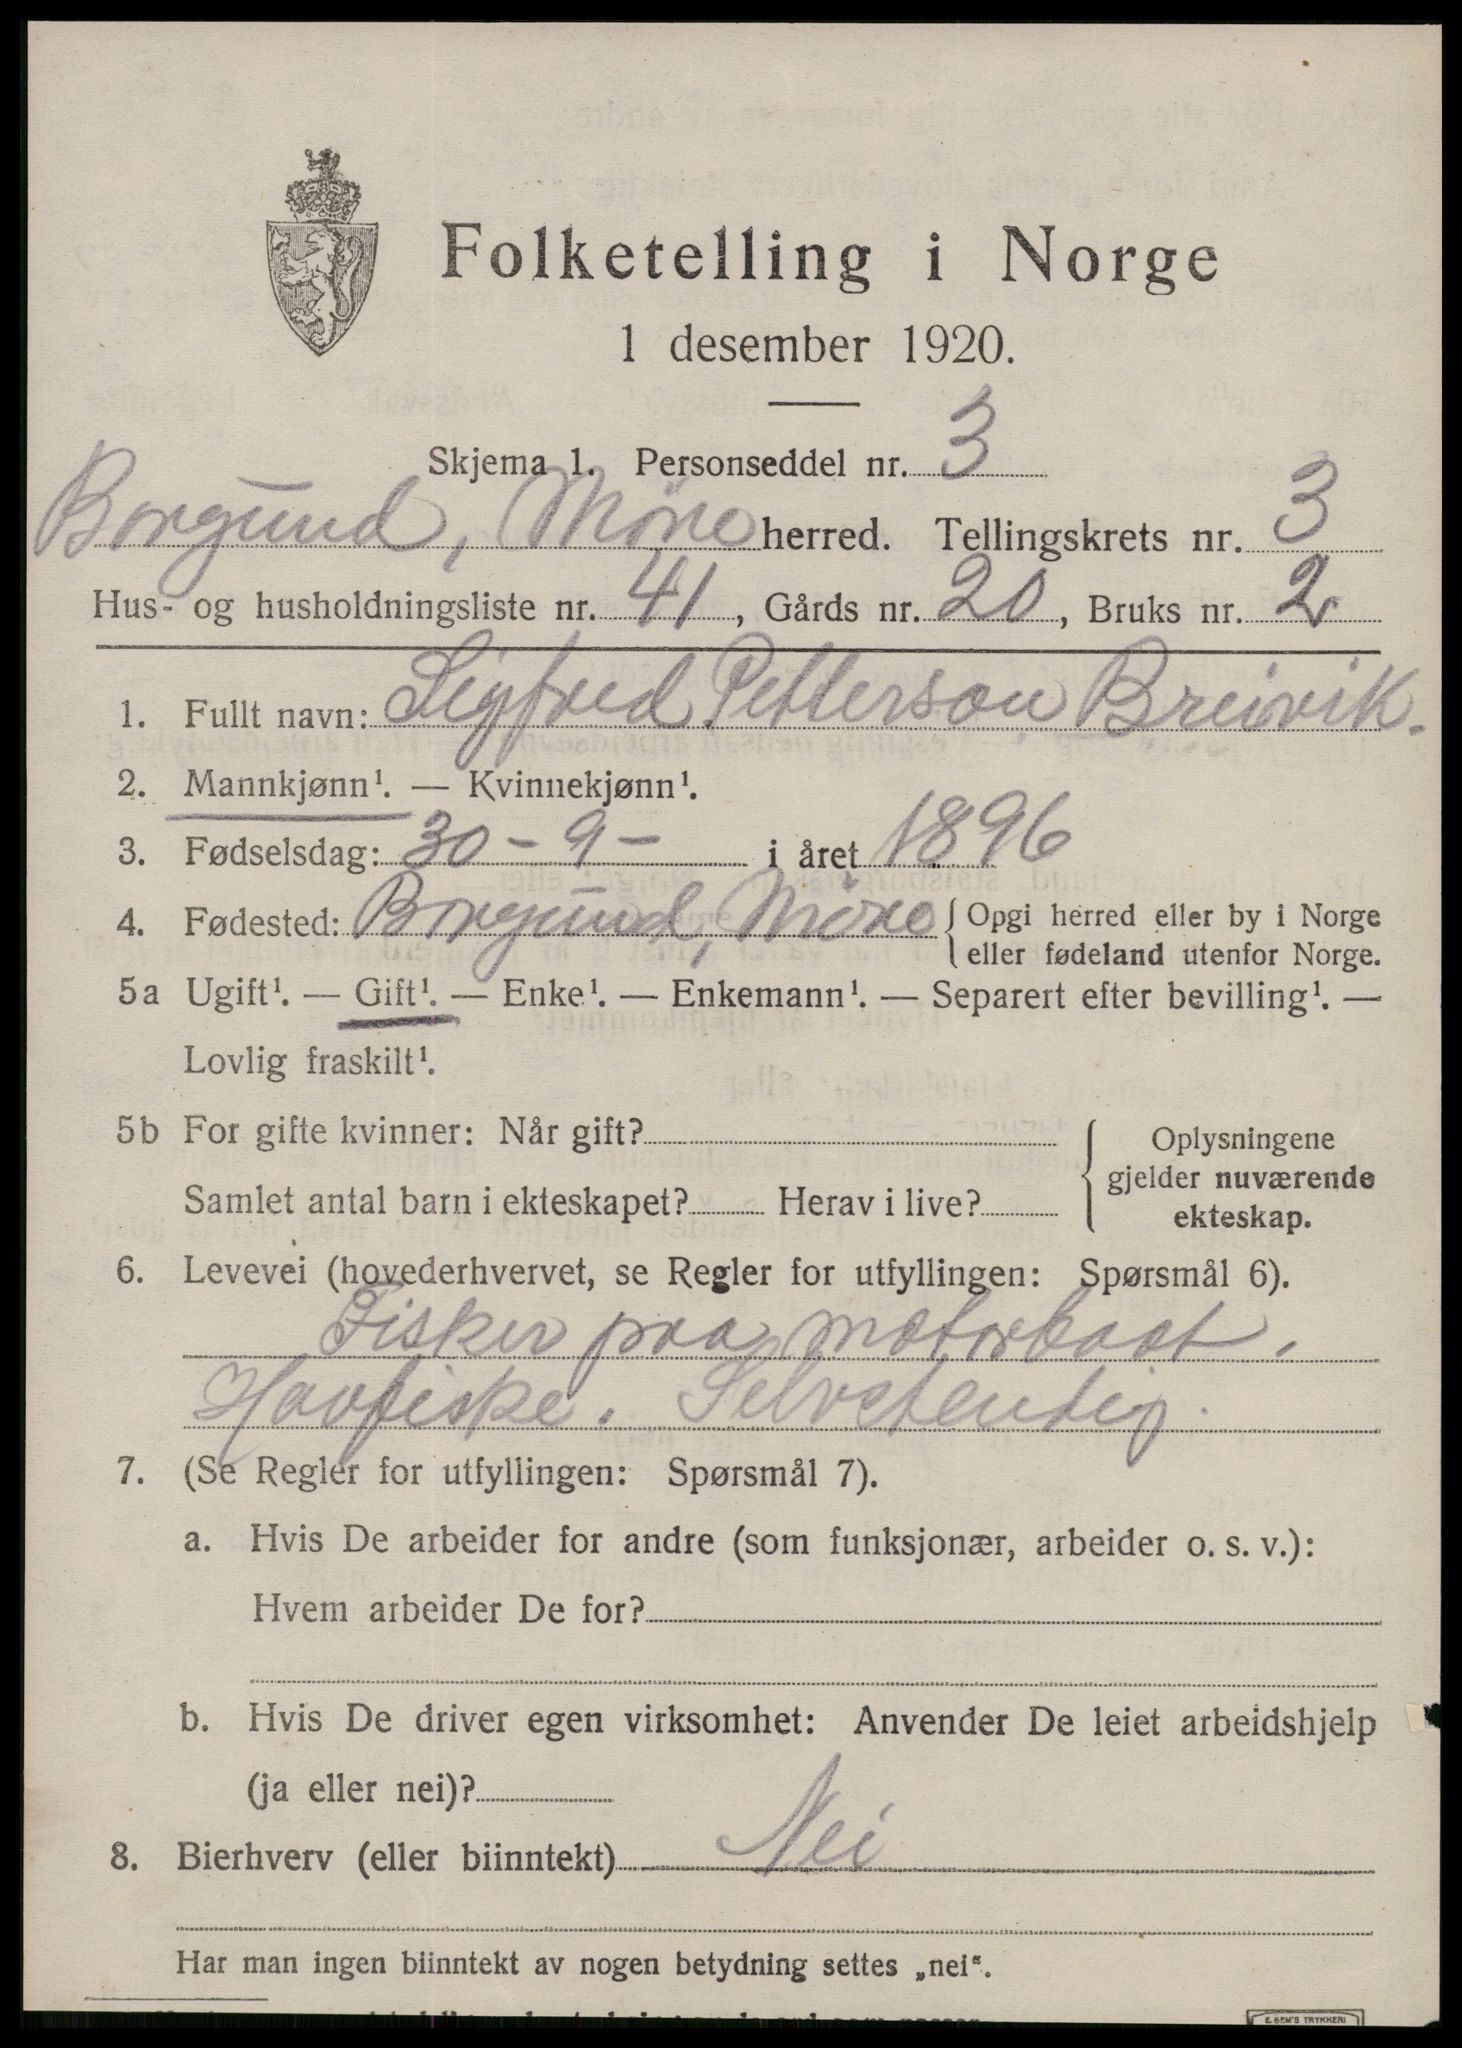 Folketelling i Norge
1 desember 1920.
Skjema 1. Personseddel nr. 3
Borgund, Møre herred. Tellingskrets nr. 3
Hus- og husholdningsliste nr. 41, Gårds nr. 20, Bruks nr. 2
1. Fullt navn: Sigfred Petterson Breivik.
2. Mannkjønn¹. — Kvinnekjønn¹.
3. Fødselsdag: 30 - 9 - i året 1896
4. Fødested: Borgund, Møre { Opgi herred eller by i Norge
eller fødeland utenfor Norge.
5a Ugift¹. — Gift¹. — Enke¹. — Enkemann¹. — Separert efter bevilling¹. —
Lovlig fraskilt¹.
5b For gifte kvinner: Når gift?
Samlet antal barn i ekteskapet? Herav i live?
Oplysningene
gjelder nuværende
ekteskap.
6. Levevei (hovederhvervet, se Regler for utfyllingen: Spørsmål 6).
Fisker paa motorbaat.
Havfiske. Selvstendig.
7. (Se Regler for utfyllingen: Spørsmål 7).
a. Hvis De arbeider for andre (som funksjonær, arbeider o. s. v.):
Hvem arbeider De for?
b. Hvis De driver egen virksomhet: Anvender De leiet arbeidshjelp
(ja eller nei)?
8. Bierhverv (eller biinntekt) Nei
Har man ingen biinntekt av nogen betydning settes „nei“.